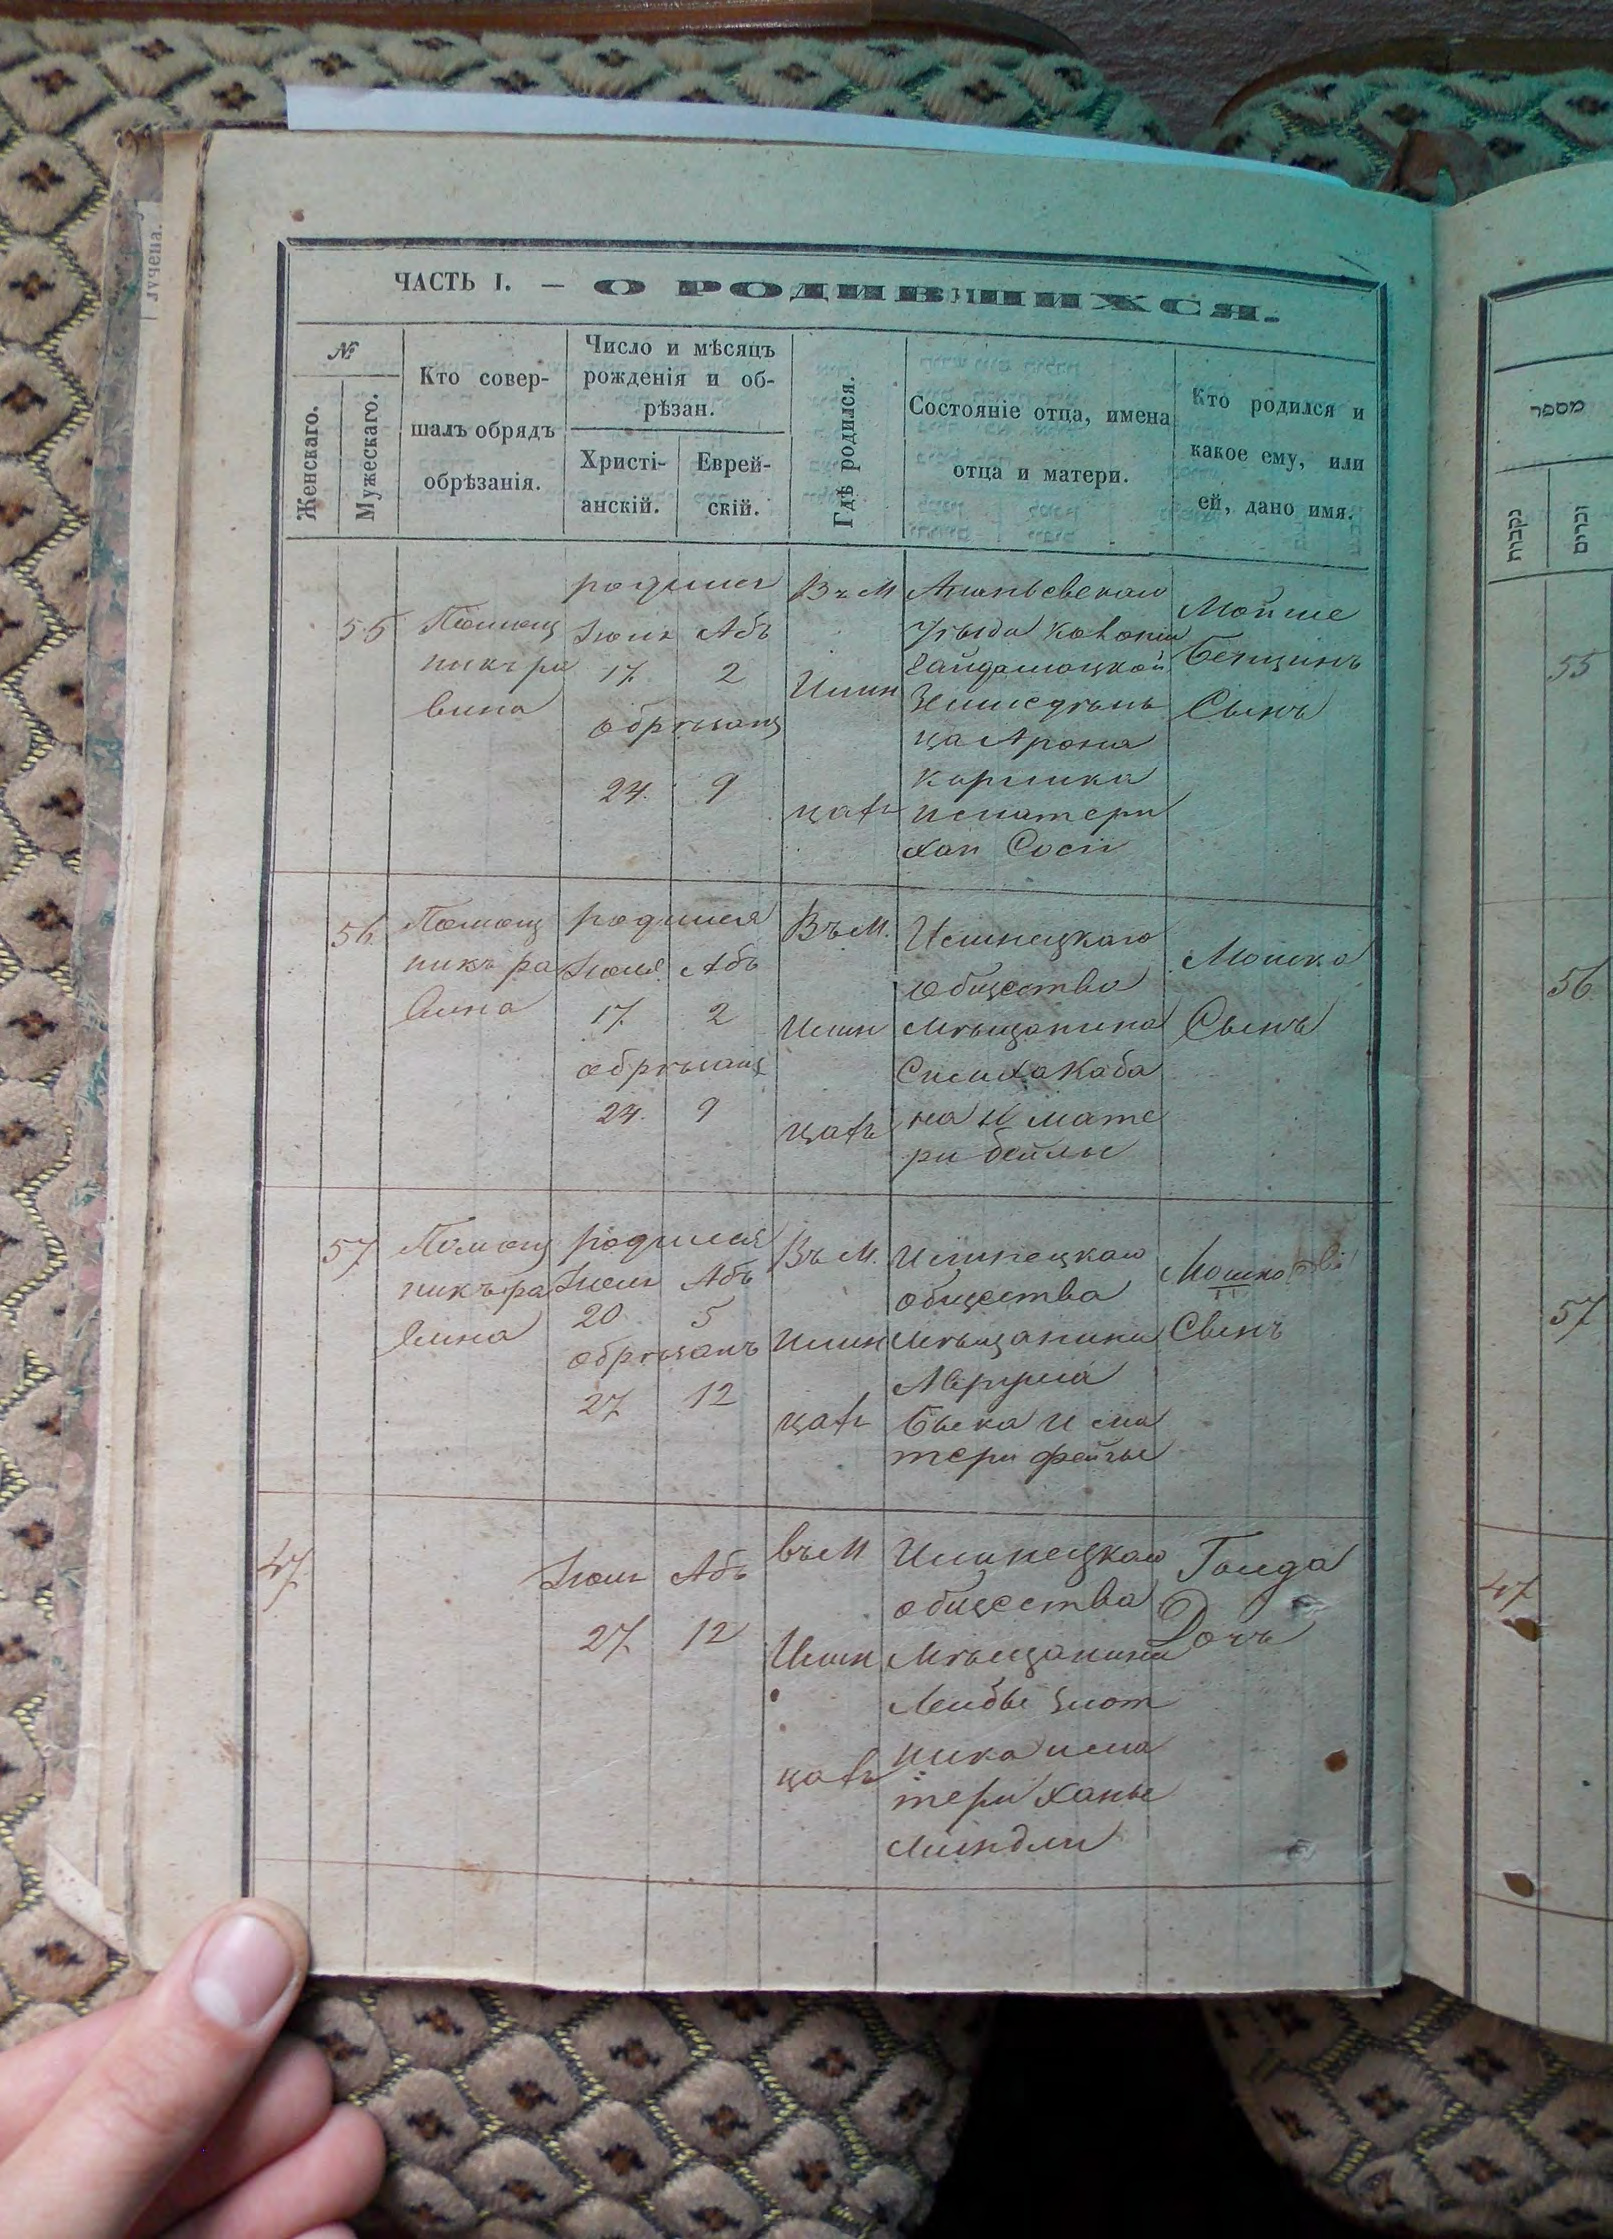 ЧАСТЬ I. — О РОДИВШИХСЯ.
№
Женскаго.
Мужескаго.
Кто совер-
шалъ обрядъ
обрѣзанія.
Число и мѣсяцъ
рожденія и об-
рѣзан.
Христі-
анскій.
Еврей-
скій.
Гдѣ родился.
Состояніе отца, имена
отца и матери.
Кто родился и
какое ему, или
ей, дано имя.
55
Помощ
никъ ра
вина
родился
Іюля Абъ
17 2
обрѣзанъ
24. 9
Въ М
Ананьевскаго
уѣзда колоніи
земледѣль
ца Арона
и матери
Мойше
Бенціинъ
Сынъ
56
Помощ
никъ ра
вина
родился
Іюля Абъ
17 2
обрѣзанъ
24. 9
Въ М.
общества
мѣщанина
на и мате
ри Бейлы
Мошко
Сынъ
57
Помощ
никъ ра
вина
родился
Іюля Абъ
20 5
обрѣзанъ
27 12
Въ М.
общества
мѣщанина
и ма
тери Фейгы
Мошко
Сынъ
47
Іюля Абъ
27 12
въ М
общества
мѣщанина
Лейбы Злот
ника и ма
тери Ханы
Миндли
Голда
Дочь
מספר
נקבות
זכרים
55
56
57
47